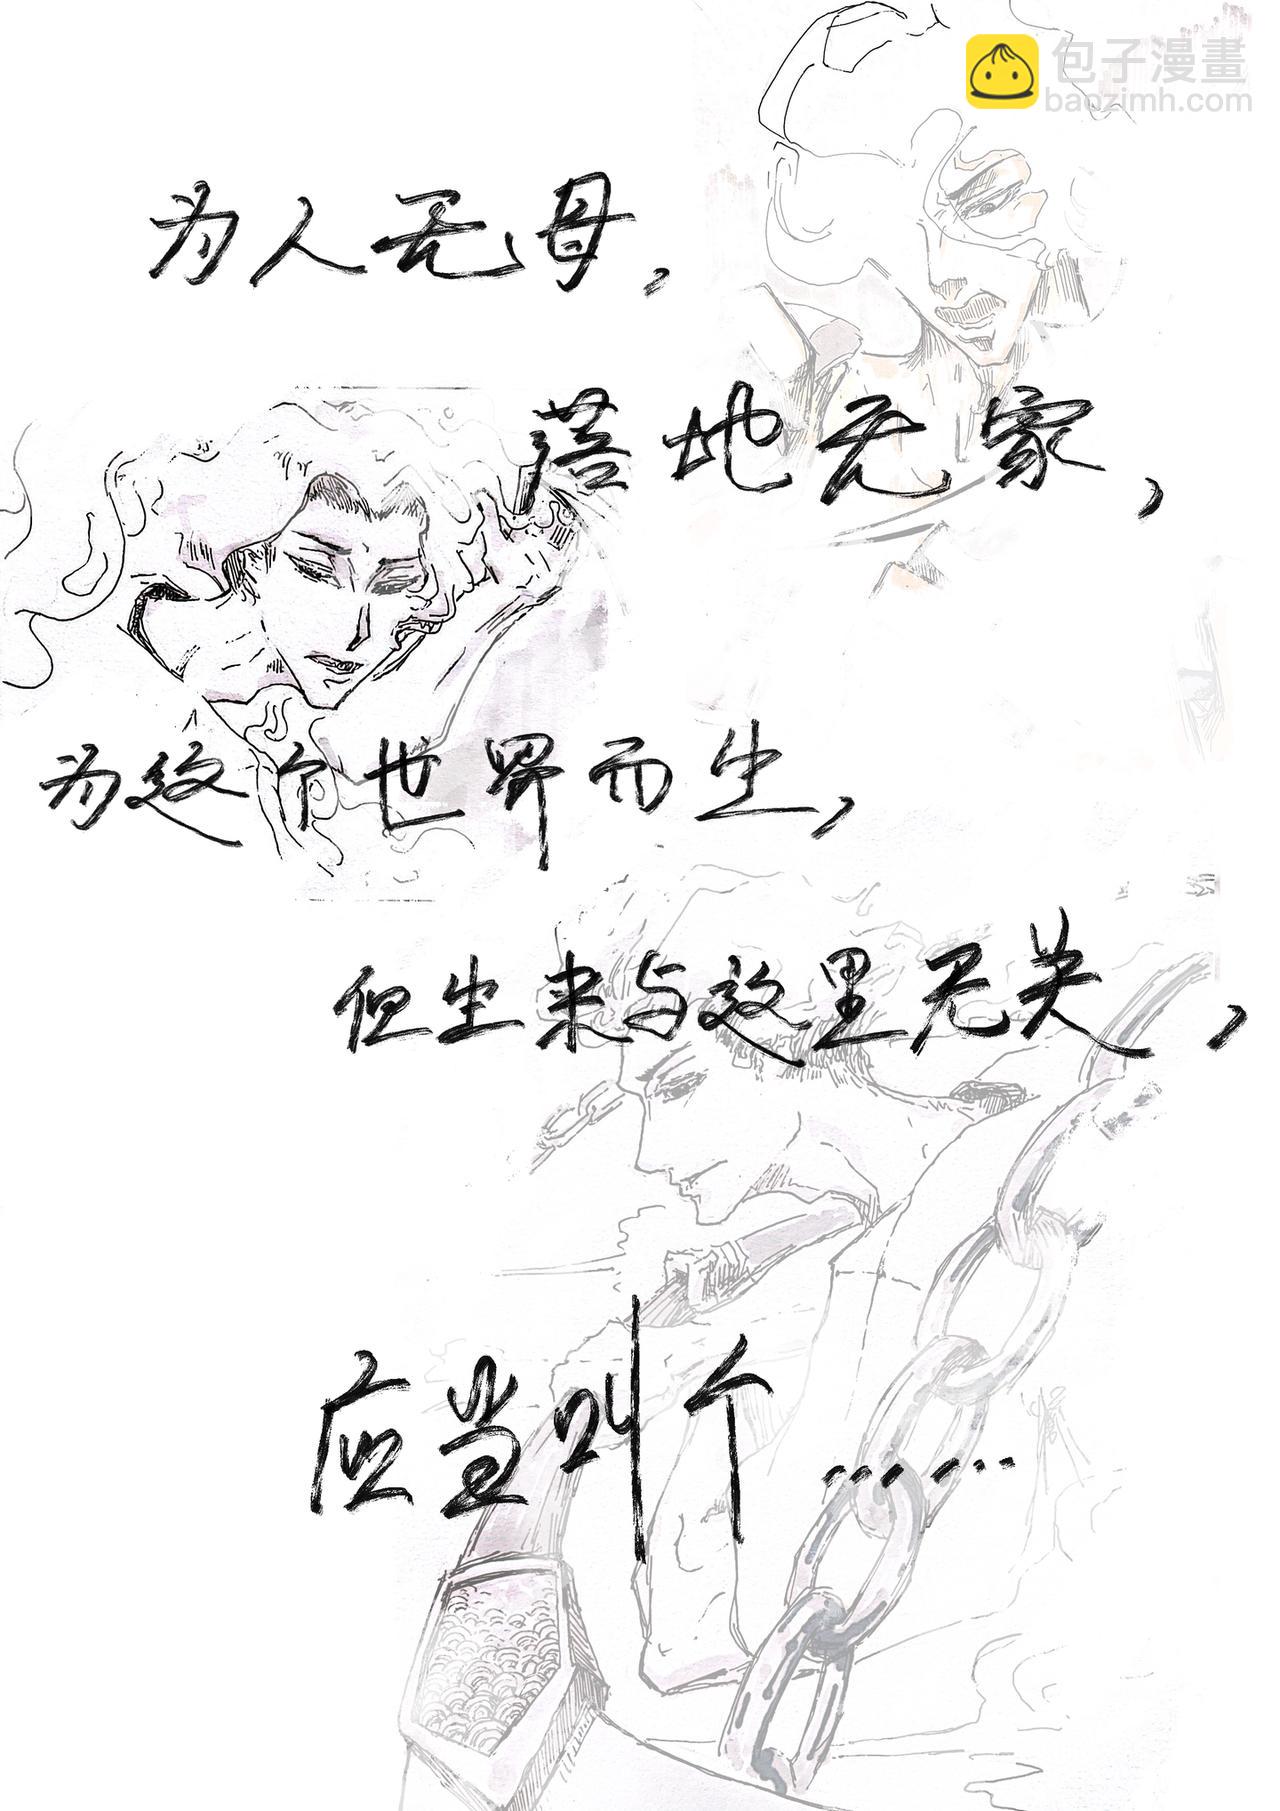 包子漫畫
baozimh.com
为人无母，
落地无家，
为这个世界而生，
但生来与这里无关，
应当叫个……